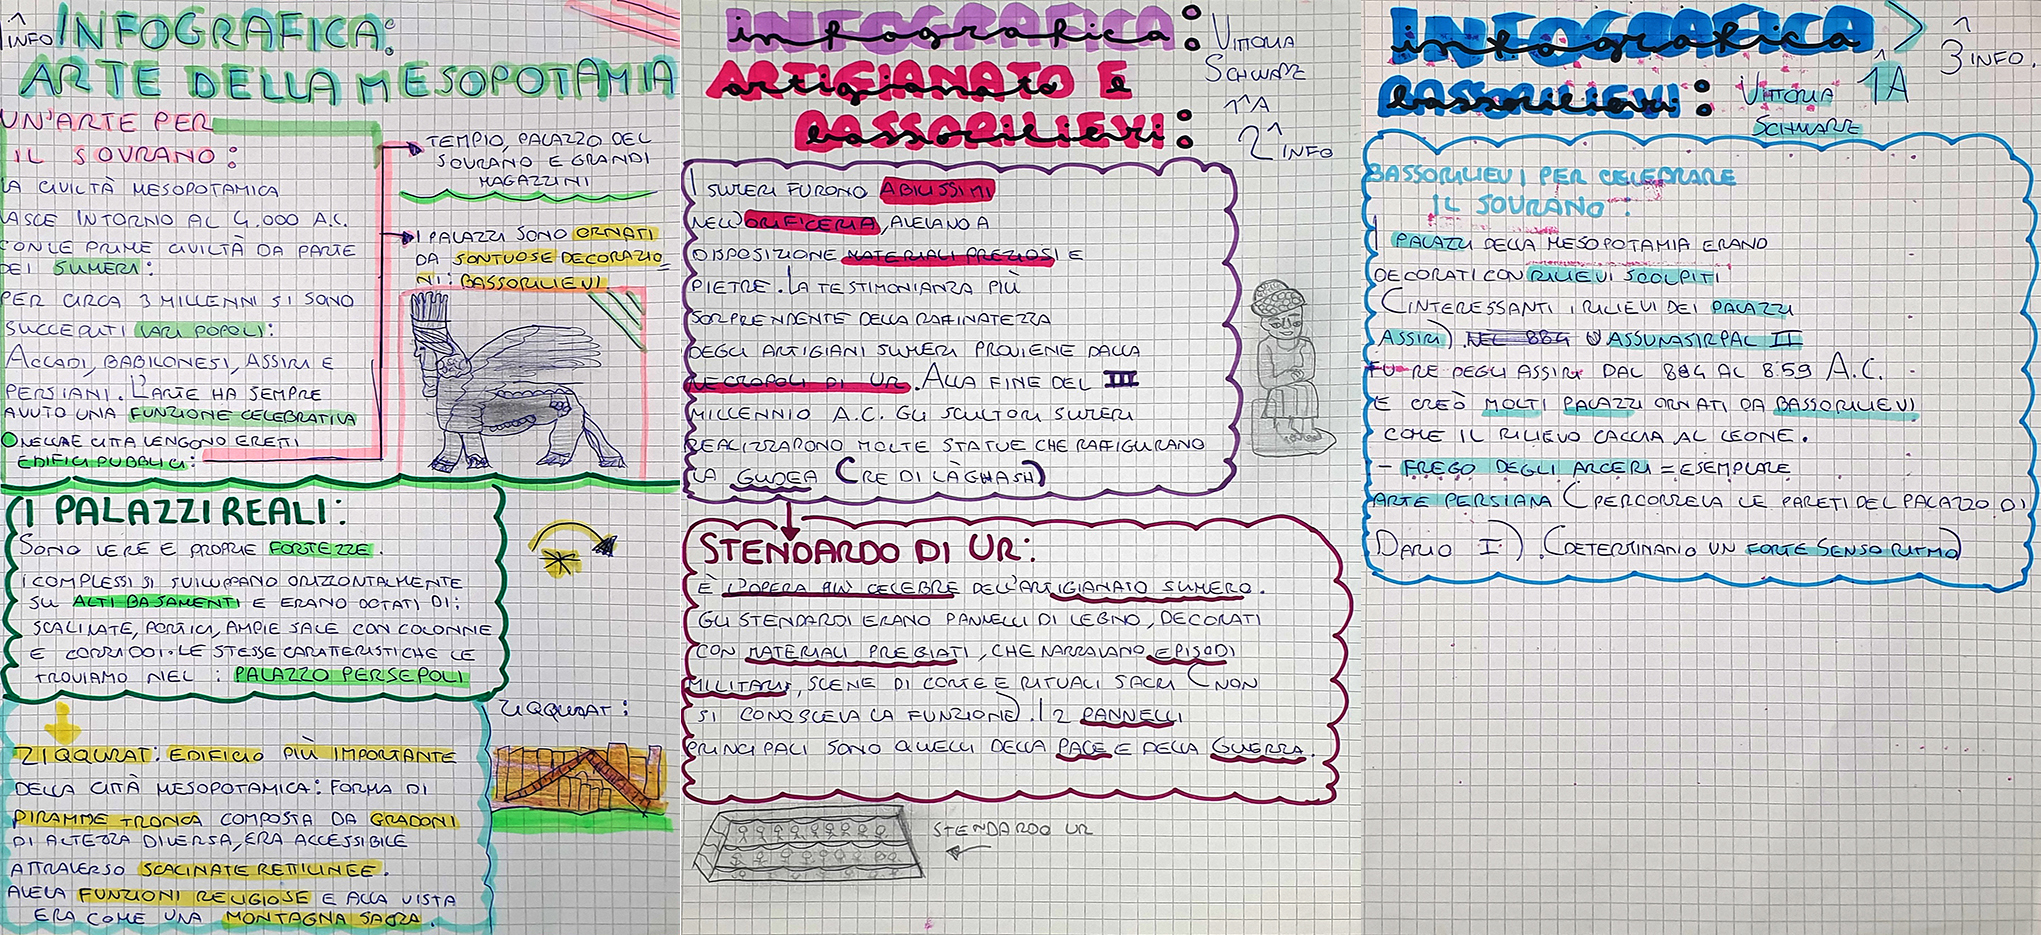 1^ INFO INFOGRAFICA:
ARTE DELLA MESOPOTAMIA
UN'ARTE PER
IL SOVRANO:
LA CIVILTÀ MESOPOTAMICA
NASCE INTORNO AL 4.000 A.C.
CON LE PRIME CIVILTÀ DA PARTE
DEI SUMERI:
PER CIRCA 3 MILLENNI SI SONO
SUCCEDUTI VARI POPOLI:
ACCADI, BABILONESI, ASSIRI E
PERSIANI. L'ARTE HA SEMPRE
AVUTO UNA FUNZIONE CELEBRATIVA
NELLE CITÀ VENGONO ERETI
EDIFICI PUBBLICI:
TEMPIO, PALAZZO DEL
SOVRANO E GRANDI
MAGAZZINI
I PALAZZI SONO ORNATI
DA SONTUOSE DECORAZIO
NI: BASSORILIEVI
I PALAZZI REALI:
SONO VERE E PROPRIE FORTEZZE.
I COMPLESSI SI SVILUPPANO ORIZZONTALMENTE
SU ALTI BASAMENTI E ERANO DOTATI DI:
SCALINATE, PORTICI, AMPIE SALE CON COLONNE
E CORRIDOI. LE STESSE CARATTERISTICHE LE
TROVIAMO NEL: PALAZZO PERSEPOLI
ZIQQURAT: EDIFICIO PIÙ IMPORTANTE
DELLA CITTÀ MESOPOTAMICA: FORMA DI
PIRAMIME TRONCA COMPOSTA DA GRADONI
DI ALTEZZA DIVERSA, ERA ACCESSIBILE
ATTRAVERSO SCALINATE RETILINEE.
AVEVA FUNZIONI RELIGIOSE E ALLA VISTA
ERA COME UNA MONTAGNA SACRA.
ZIQQURAT:
infografica:
ARTIGIANATO E
BASSORILIEVI:
VITTORIA
SCHWARZ
1^A
2^ INFO
I SUMERI FURONO ABILISSIMI
NELL'ORIFICERIA, AVEVANO A
DISPOSIZIONE MATERIALI PREZIOSI E
PIETRE. LA TESTIMONIANZA PIÙ
SORPRENDENTE DELLA RAFFINATEZZA
DEGLI ARTIGIANI SUMERI PROVIENE DALLA
NECROPOLI DI UR. ALLA FINE DEL III
MILLENNIO A.C. GLI SCULTORI SUMERI
REALIZZARONO MOLTE STATUE CHE RAFIGURANO
LA GUDEA (RE DI LÀGHASH)
STENDARDO DI UR:
È L'OPERA PIÙ CELEBRE DELL'ARTIGIANATO SUMERO.
GLI STENDARDI ERANO PANNELLI DI LEGNO, DECORATI
CON MATERIALI PREGIATI, CHE NARRAVANO EPISODI
MILITARI, SCENE DI CORTE E RITUALI SACRI (NON
SI CONOSCEVA LA FUNZIONE). I 2 PANNELLI
PRINCIPALI SONO QUELLI DELLA PACE E DELLA GUERRA.
STENDARDO UR
infografica
BASSORILIEVI:
VITTORIA 1^A
SCHWARZ
3^ INFO.
BASSORILIEVI PER CELEBRARE
IL SOVRANO:
I PALAZZI DELLA MESOPOTAMIA ERANO
DECORATI CON RILIEVI SCOLPITI
(INTERESSANTI I RILIEVI DEI PALAZZI
ASSIRI). NEL 884 ASSUNASIRPAL II
FU RE DEGLI ASSIRI DAL 884 AL 859 A.C.
E CREÒ MOLTI PALAZZI ORNATI DA BASSORILIEVI
COME IL RILIEVO CACCIA AL LEONE.
- FREGO DEGLI ARCERI = ESEMPLARE
ARTE PERSIANA (PERCORREVA LE PARETI DEL PALAZZO DI
DARIO I). (DETERMINANO UN FORTE SENSO RITMO)